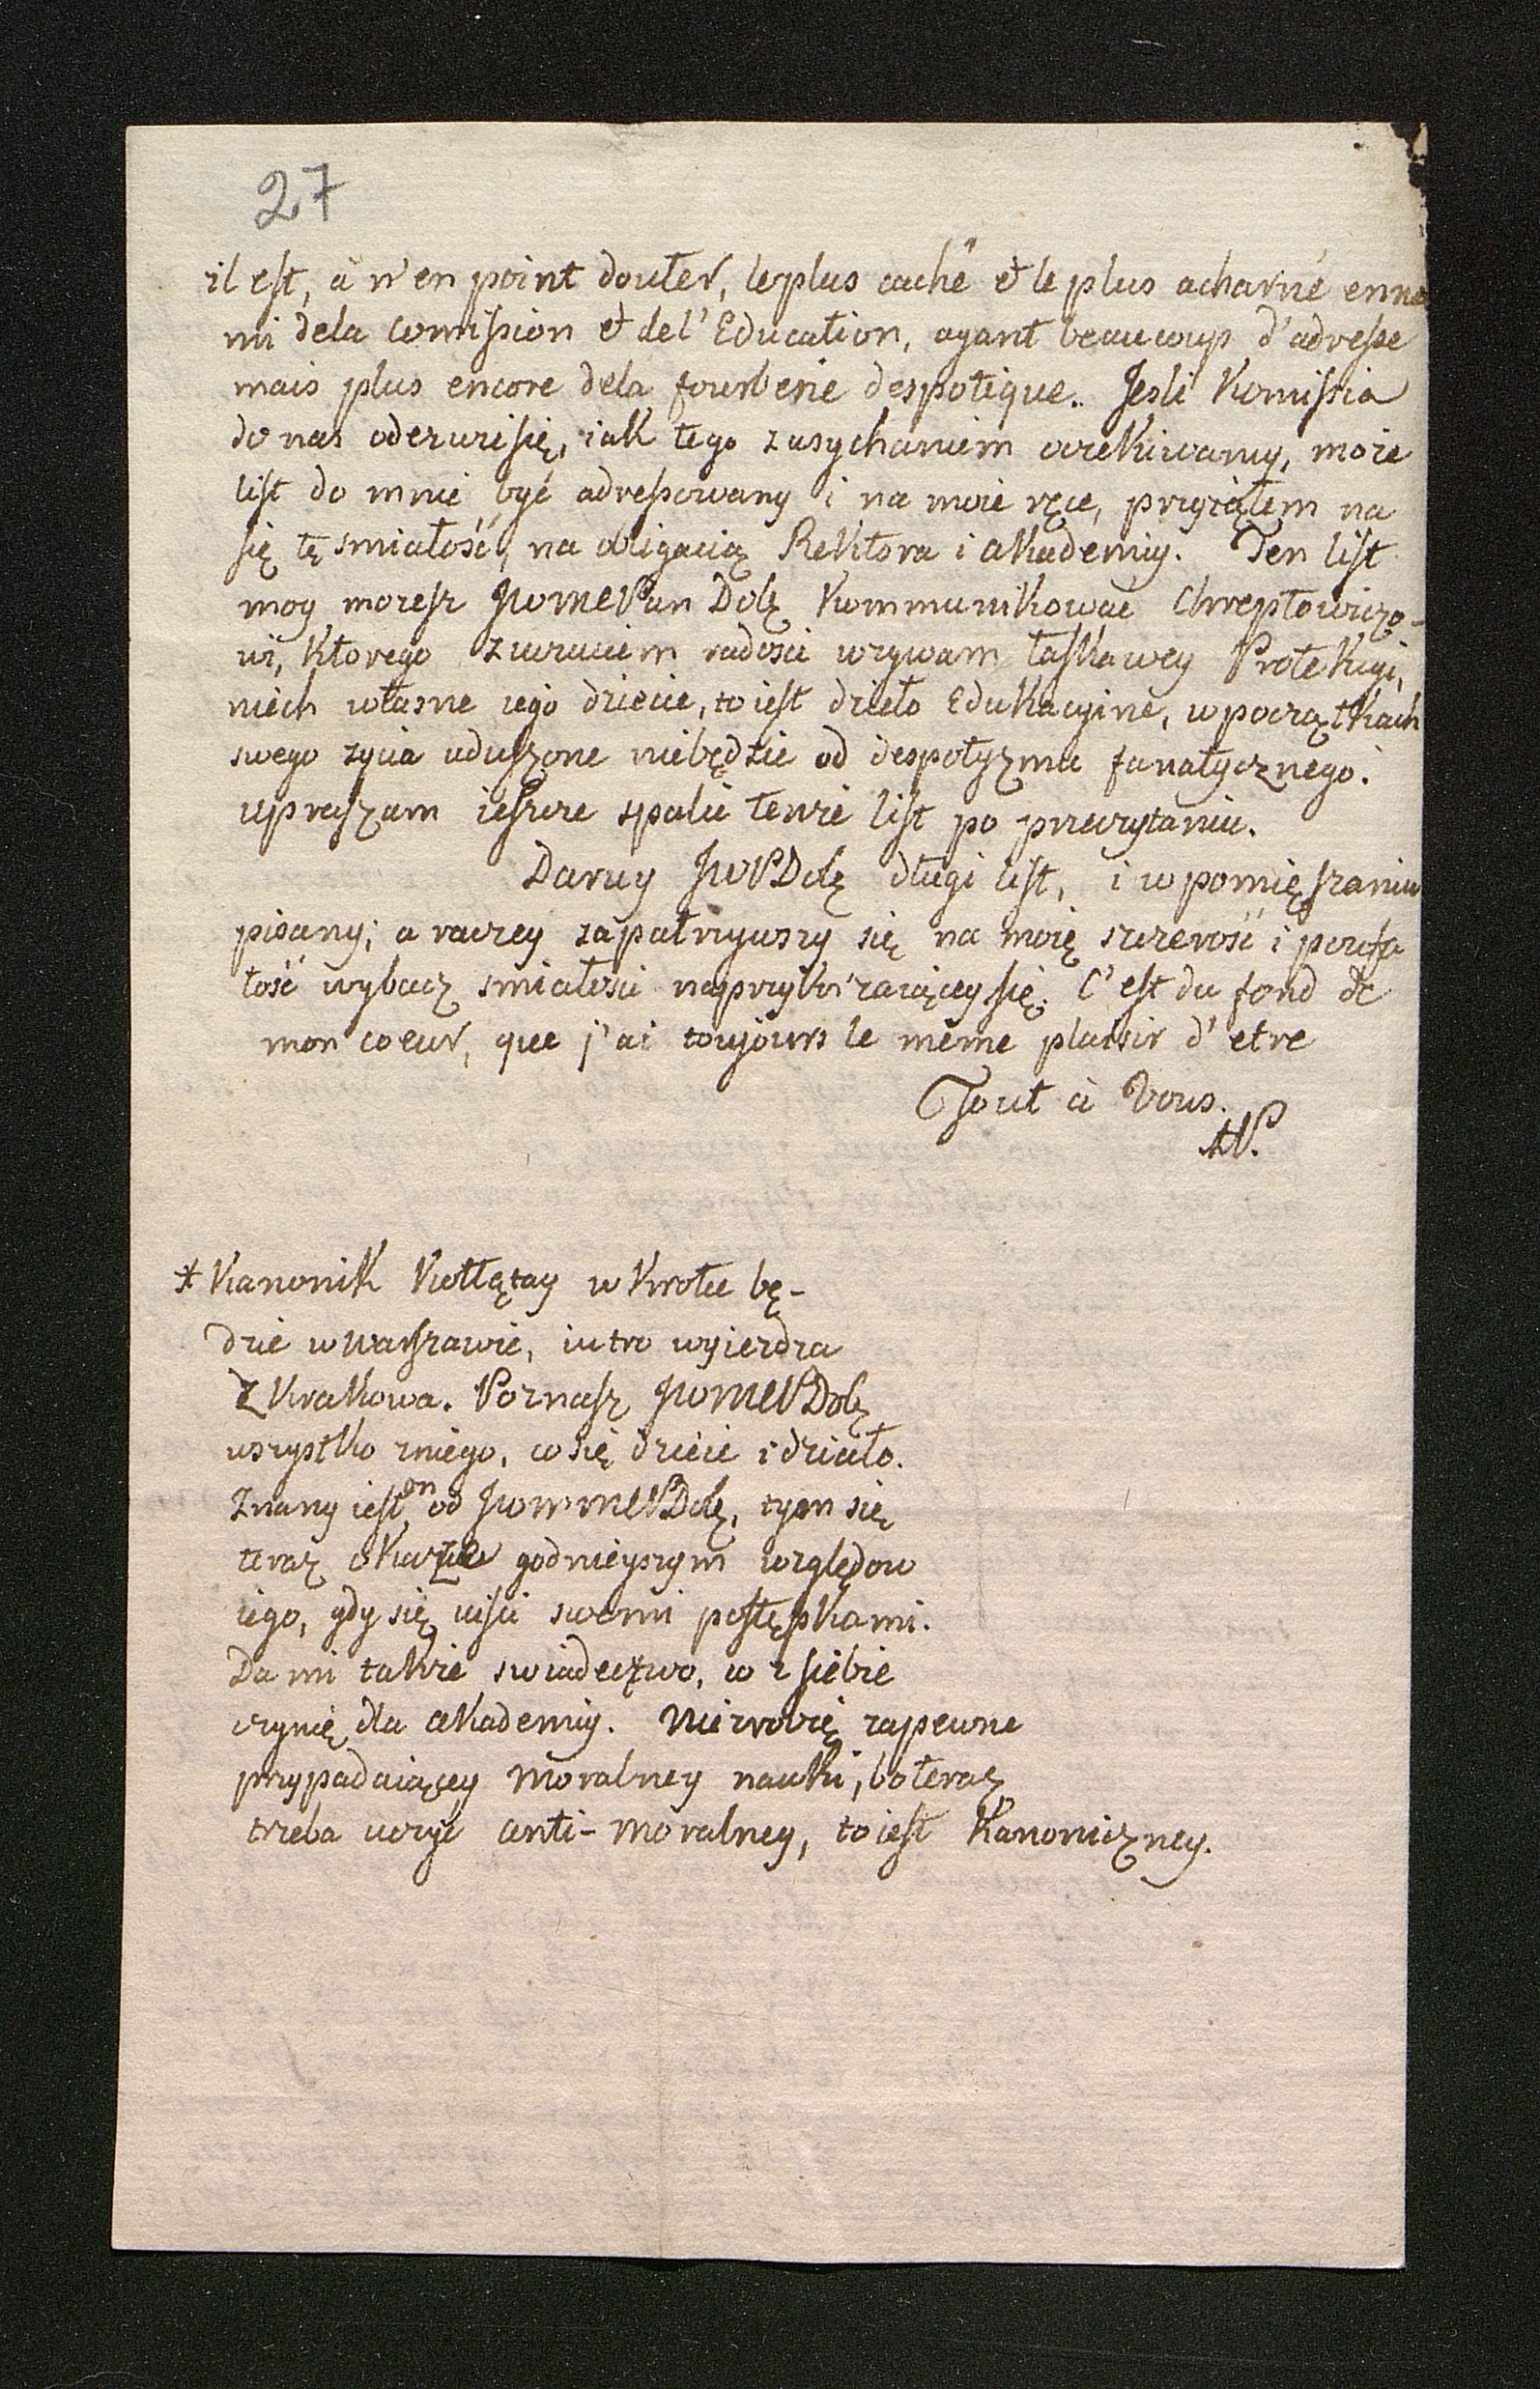 27
il est, à n'en point douter, le plus caché et le plus acharné enne
mi dela Comission et del' Education, ayant beaucoup d'adresse
mais plus encore dela fourberie despotique. Jesli Komissia
do nas odezwi się, iak tego z usychaniem oczekiwamy, może
list do mnie być adressowany i na moie ręce, przyiąłem na
się tę smiałość, na obligacią Rektora i Akademiy. Ten list
moy możesz JWMCPan Dobę kommunikować Chreptowiczo-
wi, ktorego z uczuciem radosci wzywam łaskawey Protekcyi,
niech własne iego dziecie, to iest dzieło Edukacyine, w początkach
swego życia uduszone niebędzie od despotyzmu fanatycznego.
upraszam ieszcze spalić tenże list po przeczytaniu.
Daruy JWPDobę długi list, i w pomięszaniu
pisany; a raczey zapatrzywszy się na moię szczerość i poufa
łość wybacz smiałosci naprzykrzaiącey się. C'est du fond de
mon coeur, que j'ai toujours le même plaisir d'etre
Tout à Vous.
AP.
* Kanonik Kołłątay w krotce bę-
dzie w Warszawie, iutro wyieżdza
z Krakowa. Poznasz JWMCPDobę
wszystko z niego, co się dzieie i działo.
Znany iest on od JWMMCPDobę, tym się
teraz okaże godnieyszym względow
iego, gdy się uisci swemi postępkami.
Da mi takie swiadectwo, co z siebie
czynię dla Akademiy. Nie zrobię zapewne
przypadaiącey moralney nauki, bo teraz
trzeba uczyć anti-moralney, to iest Kanoniczney.